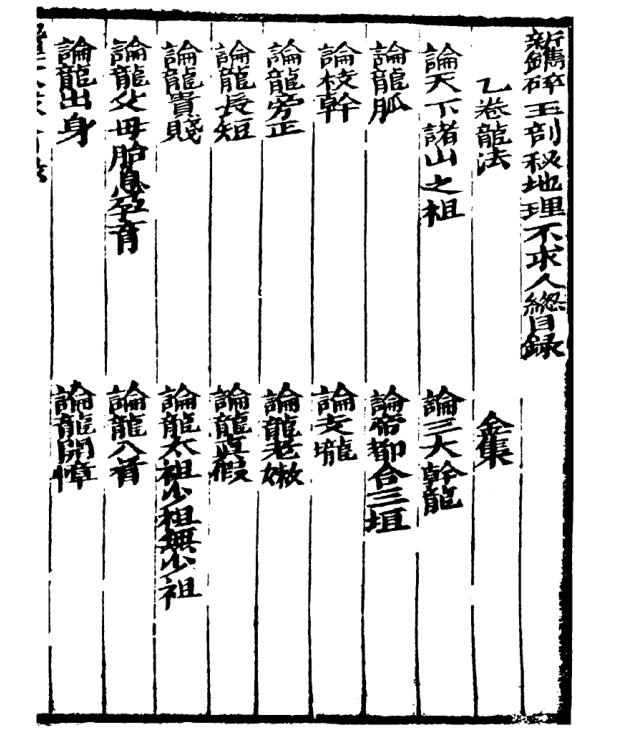 新鐫碎玉剖秘地理不求人總目錄
乙卷龍法　金集
論天下諸山之祖　論三大幹龍
論龍脈　論帝都合三垣
論枝幹　論支壠
論龍旁正　論龍老嫩
論龍長短　論龍眞假
論龍貴賤　論龍太祖少祖無少祖
論龍父母胎息孕育　論龍入首
論龍出身　論龍開幛